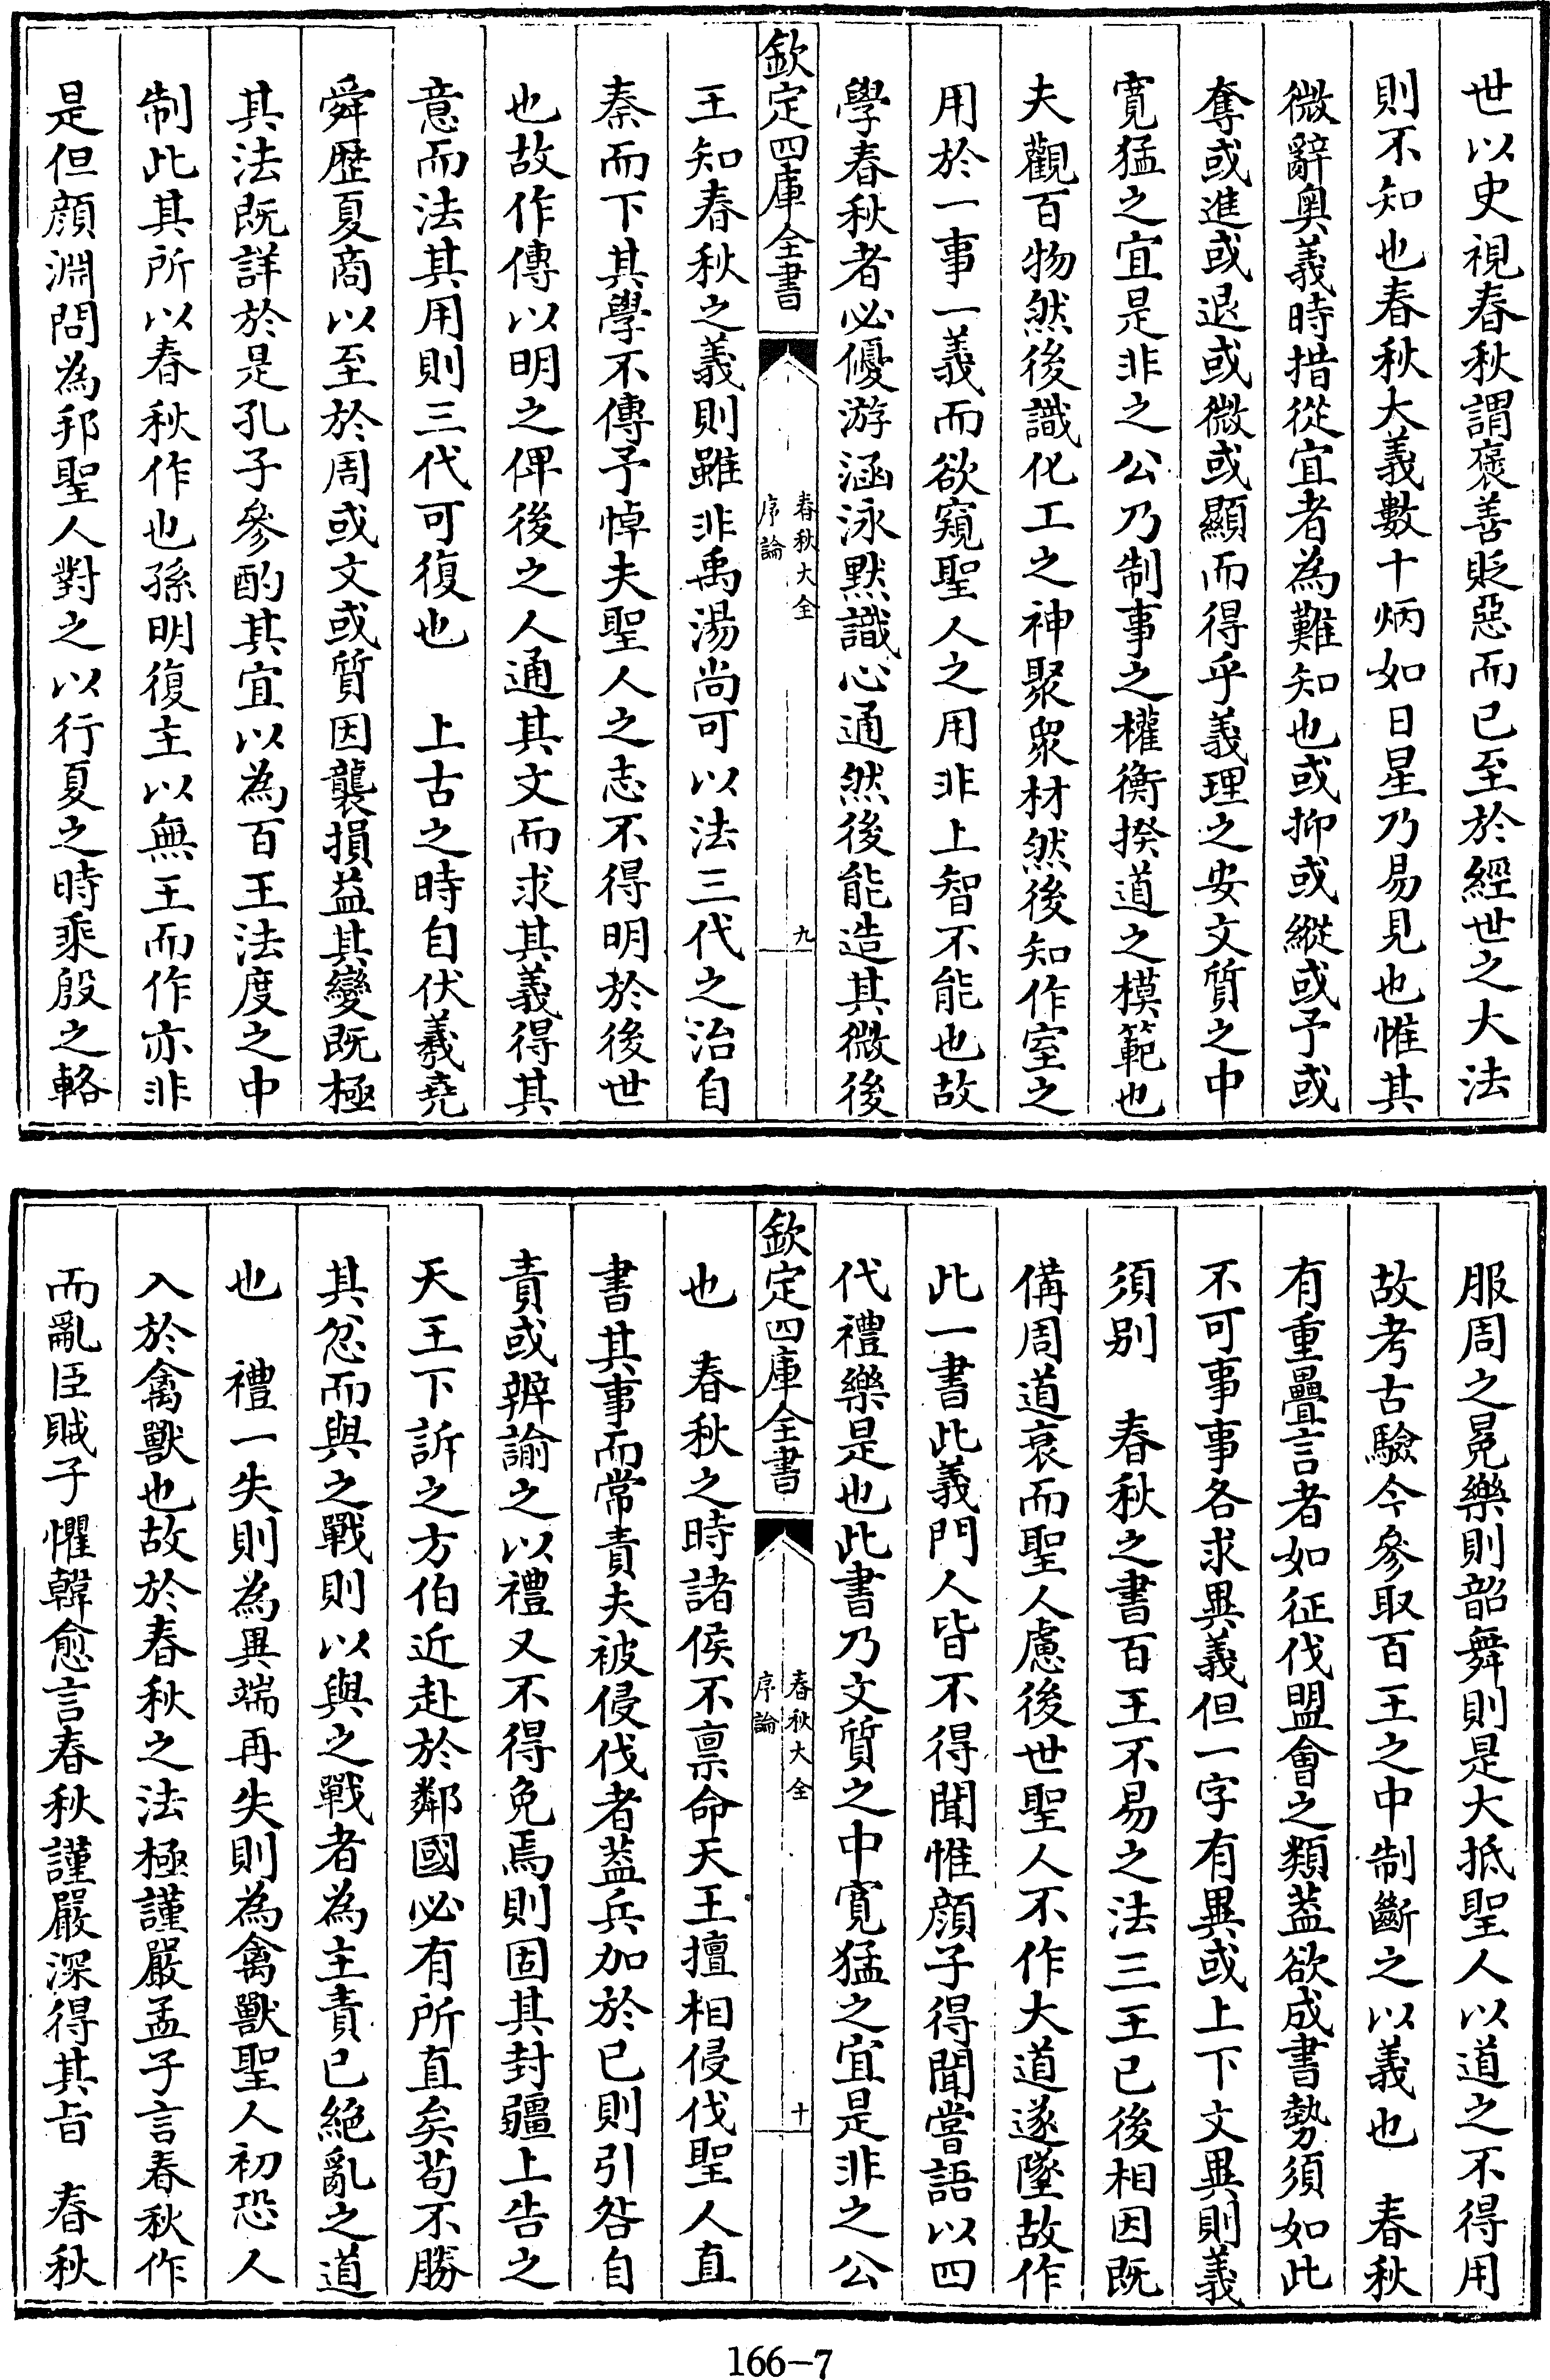 世以史視春秋謂褒善貶惡而已至於經世之大法
則不知也春秋大義數十炳如日星乃易見也惟其
微辭奥義時措從宜者為難知也或抑或縱或予或
奪或進或退或微或顯而得乎義理之安文質之中
寛猛之宜是非之公乃制事之權衡揆道之模範也
夫觀百物然後識化工之神聚衆材然後知作室之
用於一事一義而欲窺聖人之用非上智不能也故
學春秋者必優游涵泳黙識心通然後能造其微後
欽定四庫全書
春秋大全
序論
九
王知春秋之義則雖非禹湯尚可以法三代之治自
秦而下其學不傳予悼夫聖人之志不得明於後世
也故作傳以明之俾後之人通其文而求其義得其
意而法其用則三代可復也　上古之時自伏羲堯
舜歴夏商以至於周或文或質因襲損益其變既極
其法既詳於是孔子參酌其宜以為百王法度之中
制此其所以春秋作也孫明復主以無王而作亦非
是但顔淵問為邦聖人對之以行夏之時乘殷之輅
服周之冕樂則韶舞則是大抵聖人以道之不得用
故考古驗今參取百王之中制斷之以義也　春秋
有重疊言者如征伐盟會之類葢欲成書勢須如此
不可事事各求異義但一字有異或上下文異則義
須别　春秋之書百王不易之法三王已後相因既
備周道衰而聖人慮後世聖人不作大道遂墜故作
此一書此義門人皆不得聞惟顔子得聞嘗語以四
代禮樂是也此書乃文質之中寛猛之宜是非之公
欽定四庫全書
春秋大全
序論
十
也　春秋之時諸侯不禀命天王擅相侵伐聖人直
書其事而常責夫被侵伐者葢兵加於已則引咎自
責或辨諭之以禮又不得免焉則固其封疆上告之
天王下訴之方伯近赴於鄰國必有所直矣苟不勝
其忿而與之戰則以與之戰者為主責已絶亂之道
也　禮一失則為異端再失則為禽獸聖人初恐人
入於禽獸也故於春秋之法極謹嚴孟子言春秋作
而亂臣賊子懼韓愈言春秋謹嚴深得其㫖　春秋
166-7